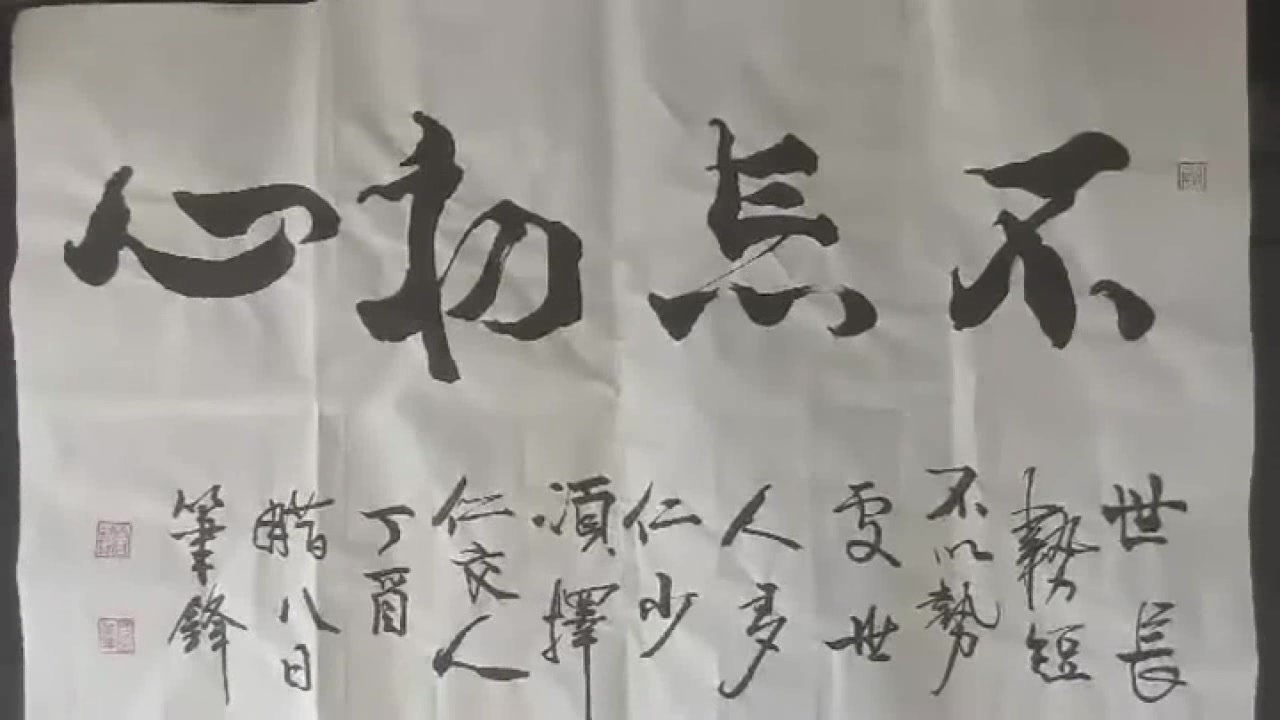 不忘初心
世長
勢短
不以勢
處世
人多
仁少
須擇
仁交人
丁酉
腊八日
筆鋒